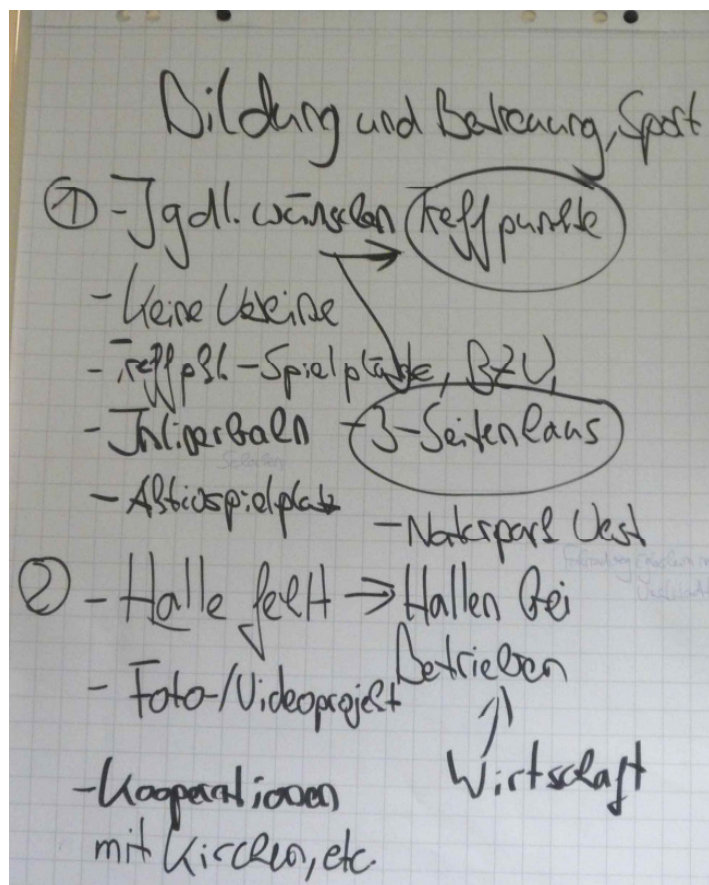 Bildung und Betreuung, Sport
① - Jgdl. wünschen Treffpunkte
- Keine Vereine
- Treffpkt. - Spielplätze, BZV,
- Inlinerbahn - 3-Seitenhaus
- Aktivspielplatz
- Naturpark West
② - Halle fehlt → Hallen bei
Betrieben
- Foto-/Videoprojekt
Wirtschaft
- Kooperationen
mit Kirchen, etc.